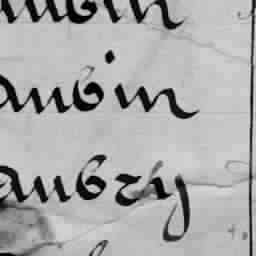 aubin
aubin
aubry